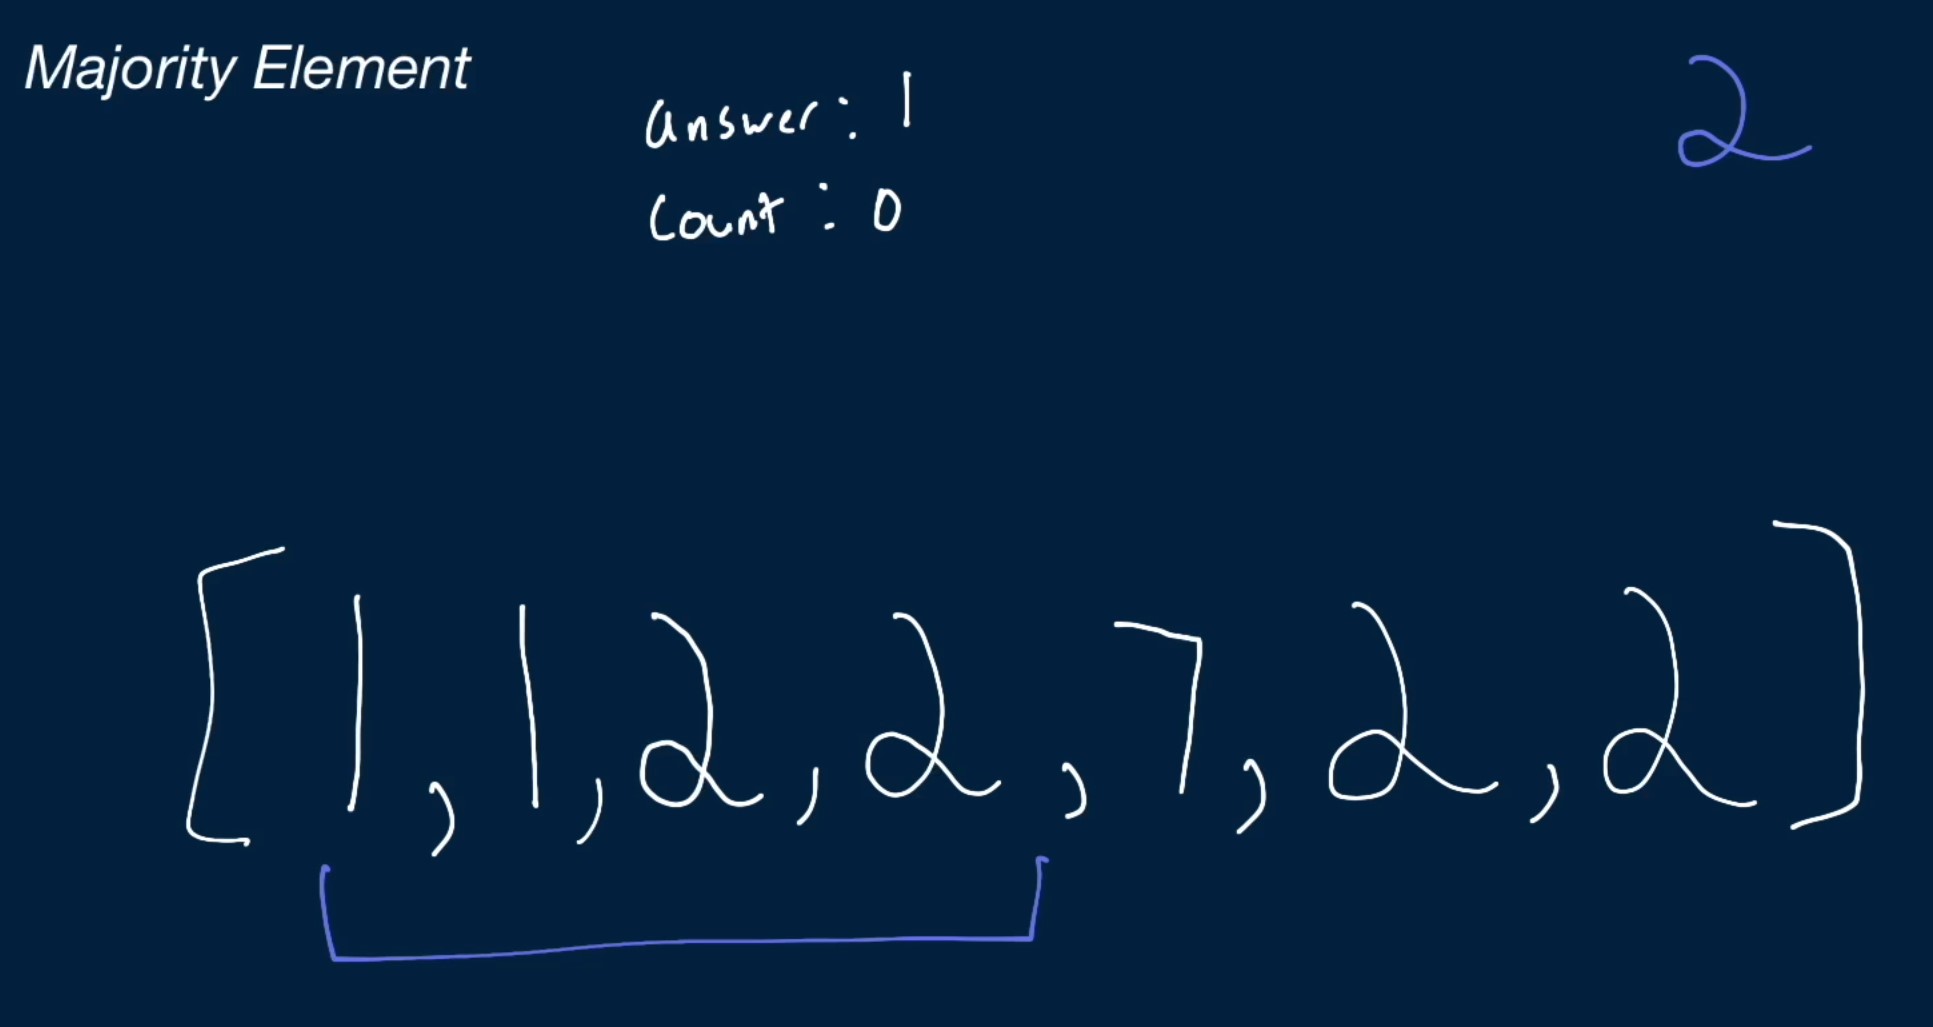 Majority Element
answer: 1
count: 0
2
[1, 1, 2, 2, 7, 2, 2]